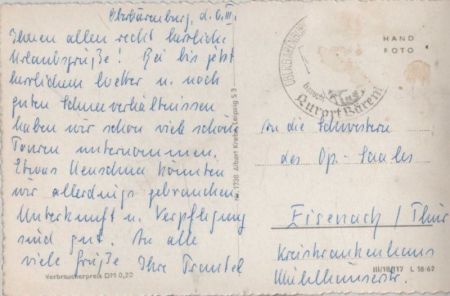 Oberbärenburg, d. 6.III.
Ihnen allen recht herzliche
Urlaubsgrüße! Bei bis jetzt
herrlichem Wetter u. noch
guten Schneeverhältnissen
haben wir schon viel schöne
Touren unternommen.
Etwas Neuschnee könnten
wir allerdings gebrauchen
Unterkunft u. Verpflegung
sind gut. An alle
viele Grüße Ihre
Verbraucherpreis DM 0,20
Albert Leipzig S 3
HAND
FOTO
Kurort Bären
An die Schwestern
des Op.-Saales
Eisenach / Thür
Kreiskrankenhaus
Mühlhauserstr.
III/18/117 L 16/62